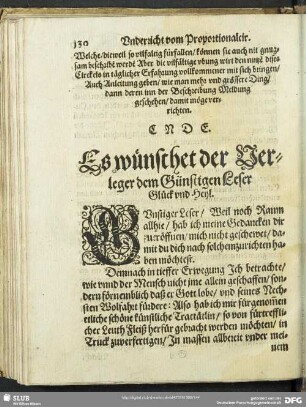 130 Vnderricht vom Proportionalcir.
Welche / dieweil so vilfaltig fürfallen / können sie auch nit gnug-
sam beschribē werdē Aber die vilfältige vbung wirt den nutz dises
Circkels in täglicher Erfahrung vollkommener mit sich bringen /
Auch Anleitung geben / wie man mehr vnd grössere Ding /
dann deren inn der Beschreibung Meldung
geschehen / damit möge ver-
richten.
E N D E.
Es wünschet der Ver-
leger dem Günstigen Leser
Glück vnd Heyl.
GVnstiger Leser / Weil noch Raum
allhie / hab ich meine Gedancken dir
zueröffnen / mich nicht geschewet / da-
mit du dich nach solchem zurichten ha-
ben möchtest.
Demnach in tieffer Erwegung Ich betrachte /
wie vnnd der Mensch nicht jme allein geschaffen / son-
dern fürnemblich daß er Gott lobe / vnd seines Nech-
sten Wolfahrt fürdere: Also hab ich mir fürgenom̄en
etliche schöne künstliche Tractätlin / so von fürtreffli-
cher Leuth Fleiß herfür gebracht werden möchten / in
Truck zuverfertigen / In massen allbereit vnder mei-
nem
SLUB